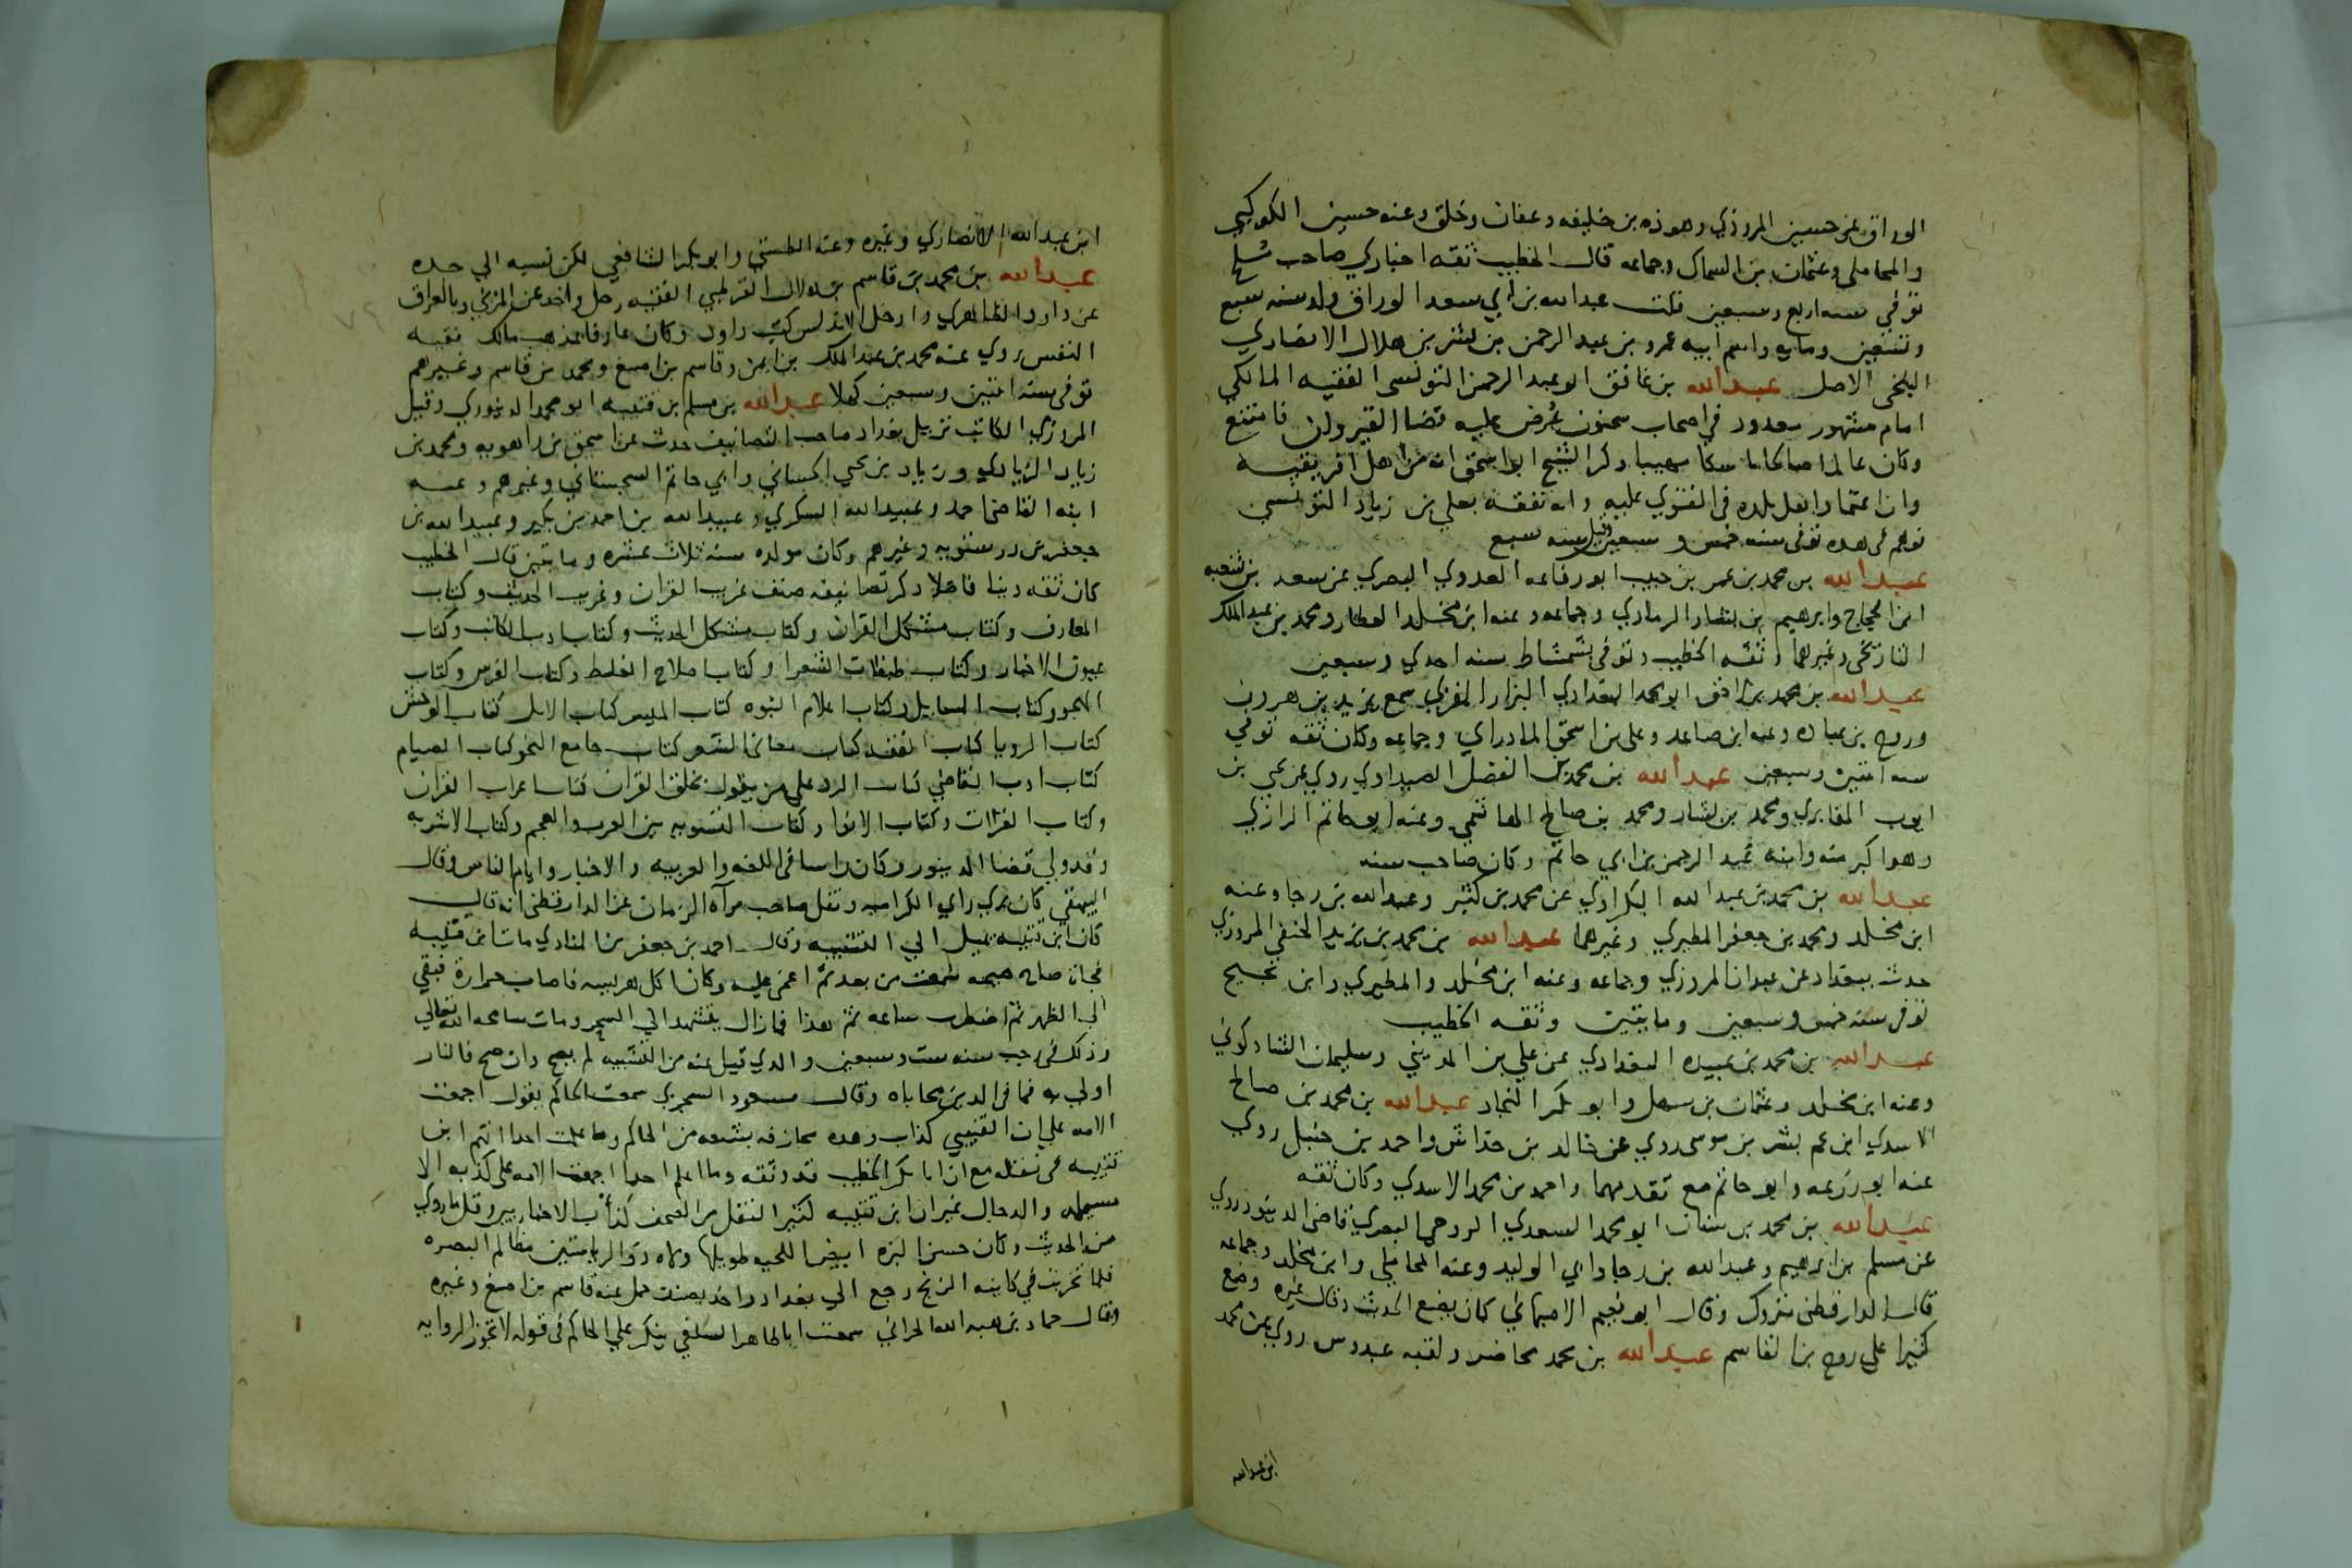 الوراق عن حسين المروزي وهوذه بن خليفه وعفان وخلق وعنه حسين الكوكبي
والمحاملي وعثمان بن السماك وجماعه قال الخطيب ثقه اخباري صاحب مُلح
توفي سنه اربع وسبعين قلت عبدالله بن ابي سعد الوراق ولد سنه سبع
وتسعين ومايه واسم ابيه عمرو بن عبد الرحمن بن بشر بن هلال الانصاري
البلخي الاصل عبدالله بن غافق ابو عبد الرحمن التونسي الفقيه المالكي
امام مشهور معدود في اصحاب سحنون عُرض عليه قضا القيروان فامتنع
وكان عالما صالحا مهيبا ذكر الشيخ ابو اسحق انه من اهل افريقيه
وان اعتماد اهل بلده في الفتوي عليه وانه تفقه بعلي بن زياد التونسي
توفي سنه خمس وسبعين وقيل سنه سبع
عبدالله بن محمد بن عمر بن حبيب ابو رفاعه العدوي البصري عن سعد بن شعبه
ابن الحجاج وابرهيم بن بشار الرمادي وجماعه وعنه ابن مخلد العطار ومحمد بن عبد الملك
التاريخي وغيرهما وثقه الخطيب وتوفي بشمشاط سنه احدي وسبعين
عبدالله بن محمد بن ابو محمد البغدادي البزار المقري سمع يزيد بن هرون
وروح بن عباده وعنه ابن صاعد وعلي بن اسحق المادراي وجماعه وكان ثقه توفي
سنه اثنين وسبعين عبدالله بن محمد بن الفضل الصيداوي روي عن يحي بن
ايوب المقابري ومحمد بن بشار ومحمد بن صالح الهاشمي وعنه ابو حاتم الرازي
وهو اكبر منه وابنه عبد الرحمن بن ابي حاتم وكان صاحب سنه
عبدالله بن محمد بن عبد الله البكراوي عن محمد بن كثير وعبد الله بن رجا وعنه
ابن مخلد ومحمد بن جعفر المطيري وغيرهما عبدالله بن محمد بن يزيد الحنفي المروزي
حدث ببغداد عن عبدان المروزي وجماعه وعنه ابن مخلد والمطيري وابن نجيح
توفي سنه خمس وسبعين ومايتين وثقه الخطيب
عبدالله بن محمد بن عبيده البغدادي عن علي بن المديني وسليمان الشاذكوني
وعنه ابن مخلد وعثمان بن سهل وابو بكر النجاد عبدالله بن محمد بن صالح
الاسدي ابن عم بشر بن موسي روي عن خالد بن خداش واحمد بن حنبل روي
عنه ابو زرعه وابو حاتم مع تقدمهما واحمد بن محمد الاسدي وكان ثقه
عبدالله بن محمد بن سنان ابو محمد السعدي الروحي البصري قاضي الدينور روي
عن مسلم بن ابرهيم وعبدالله بن رجا وابي الوليد وعنه المحاملي وابن مخلد وجماعه
قال الدارقطني متروك وقال ابو نعيم الاصبهاني كان يضع الحديث وقال غيره وضع
كثيرا علي روح بن القاسم عبدالله بن محمد بن محاضر ولقبه عبدوس روي عن محمد
ابن عبدالله
ابن عبدالله الانصاري وغيره وعنه الطستي وابو بكر الشافعي لكن نسبه الي جده
عبدالله بن محمد بن قاسم بن هلال القرطبي الفقيه رحل واخذ عن المزني وبالعراق
عن داود الظاهري وادخل الاندلس كتب داود وكان عارفا بمذهب مالك فقيه
النفس روي عنه محمد بن عبد الملك بن ايمن وقاسم بن اصبغ ومحمد بن قاسم وغيرهم
توفي سنه اثنين وسبعين كهلا عبدالله بن مسلم بن قتيبه ابو محمد الدينوري وقيل
المروزي الكاتب نزيل بغداد صاحب التصانيف حدث عن اسحق بن راهويه ومحمد بن
زياد الزيادي وزياد بن يحي الحساني وابي حاتم السجستاني وغيرهم وعنه
ابنه القاضي احمد وعبيد الله السكري وعبيد الله بن احمد بن بكير وعبد الله بن
جعفر بن درستويه وغيرهم وكان مولده سنه ثلاث عشره ومايتين قال الخطيب
كان ثقه دينا فاضلا ذكر تصانيفه صنف غريب القران وغريب الحديث وكتاب
المعارف وكتاب مشكل القران وكتاب مشكل الحديث وكتاب ادب الكاتب وكتاب
عيون الاخبار وكتاب طبقات الشعرا وكتاب اصلاح الغلط وكتاب الفرس وكتاب
الهجو وكتاب المسايل وكتاب اعلام النبوه كتاب الميسر كتاب الابل كتاب الوحش
كتاب الرويا كتاب الفقه كتاب معاني الشعر كتاب جامع النحو كتاب الصيام
كتاب ادب القاضي كتاب الرد علي من يقول بخلق القران كتاب اعراب القران
وكتاب القراات وكتاب الانوا وكتاب التسويه بين العرب والعجم وكتاب الاشربه
وقد ولي قضا الدينور وكان راسا في اللغه والعربيه والاخبار وايام الناس وقال
البيهقي كان يري راي الكراميه ونقل صاحب مرآه الزمان عن الدارقطني انه قال
كان ابن قتيبه يميل الي التشبيه وقال احمد بن جعفر بن المنادي مات ابن قتيبه
فجاه صاح صيحه سمعت من بعد ثم اغمي عليه وكان اكل هريسه فاصاب حراره فبقي
الي الظهر ثم اضطرب ساعه ثم هدا فما زال يتشهد الي السحر ومات سامحه الله تعالي
وذلك في رجب سنه ست وسبعين والذي قيل عنه من التشبيه لم يصح وان صح فالنار
اولي به فما في الدين محاباه وقال مسعود السجزي سمعت الحاكم يقول اجمعت
الامه علي ان القتيبي كذاب وهذه مجازفه بشعه من الحاكم وما علمت احدا اتهم ابن
قتيبه في نقله مع ان ابا بكر الخطيب قد وثقه وما اعلم احدا اجمعت الامه علي كذبه الا
مسيلمه والدجال غير ان ابن قتيبه كثير النقل من الصحف كدأب الاخباريين وقل ما روي
من الحديث وكان حسن البزه ابيض اللحيه طويلها ولاه ذو الرياستين مظالم البصره
فلما خربت في كاينه الزنج رجع الي بغداد واخذ يصنف حمل عنه قاسم بن اصبغ وغيره
وقال حماد بن هبه الله الحراني سمعت ابا طاهر السلفي ينكر علي الحاكم في قوله لا تجوز الروايه